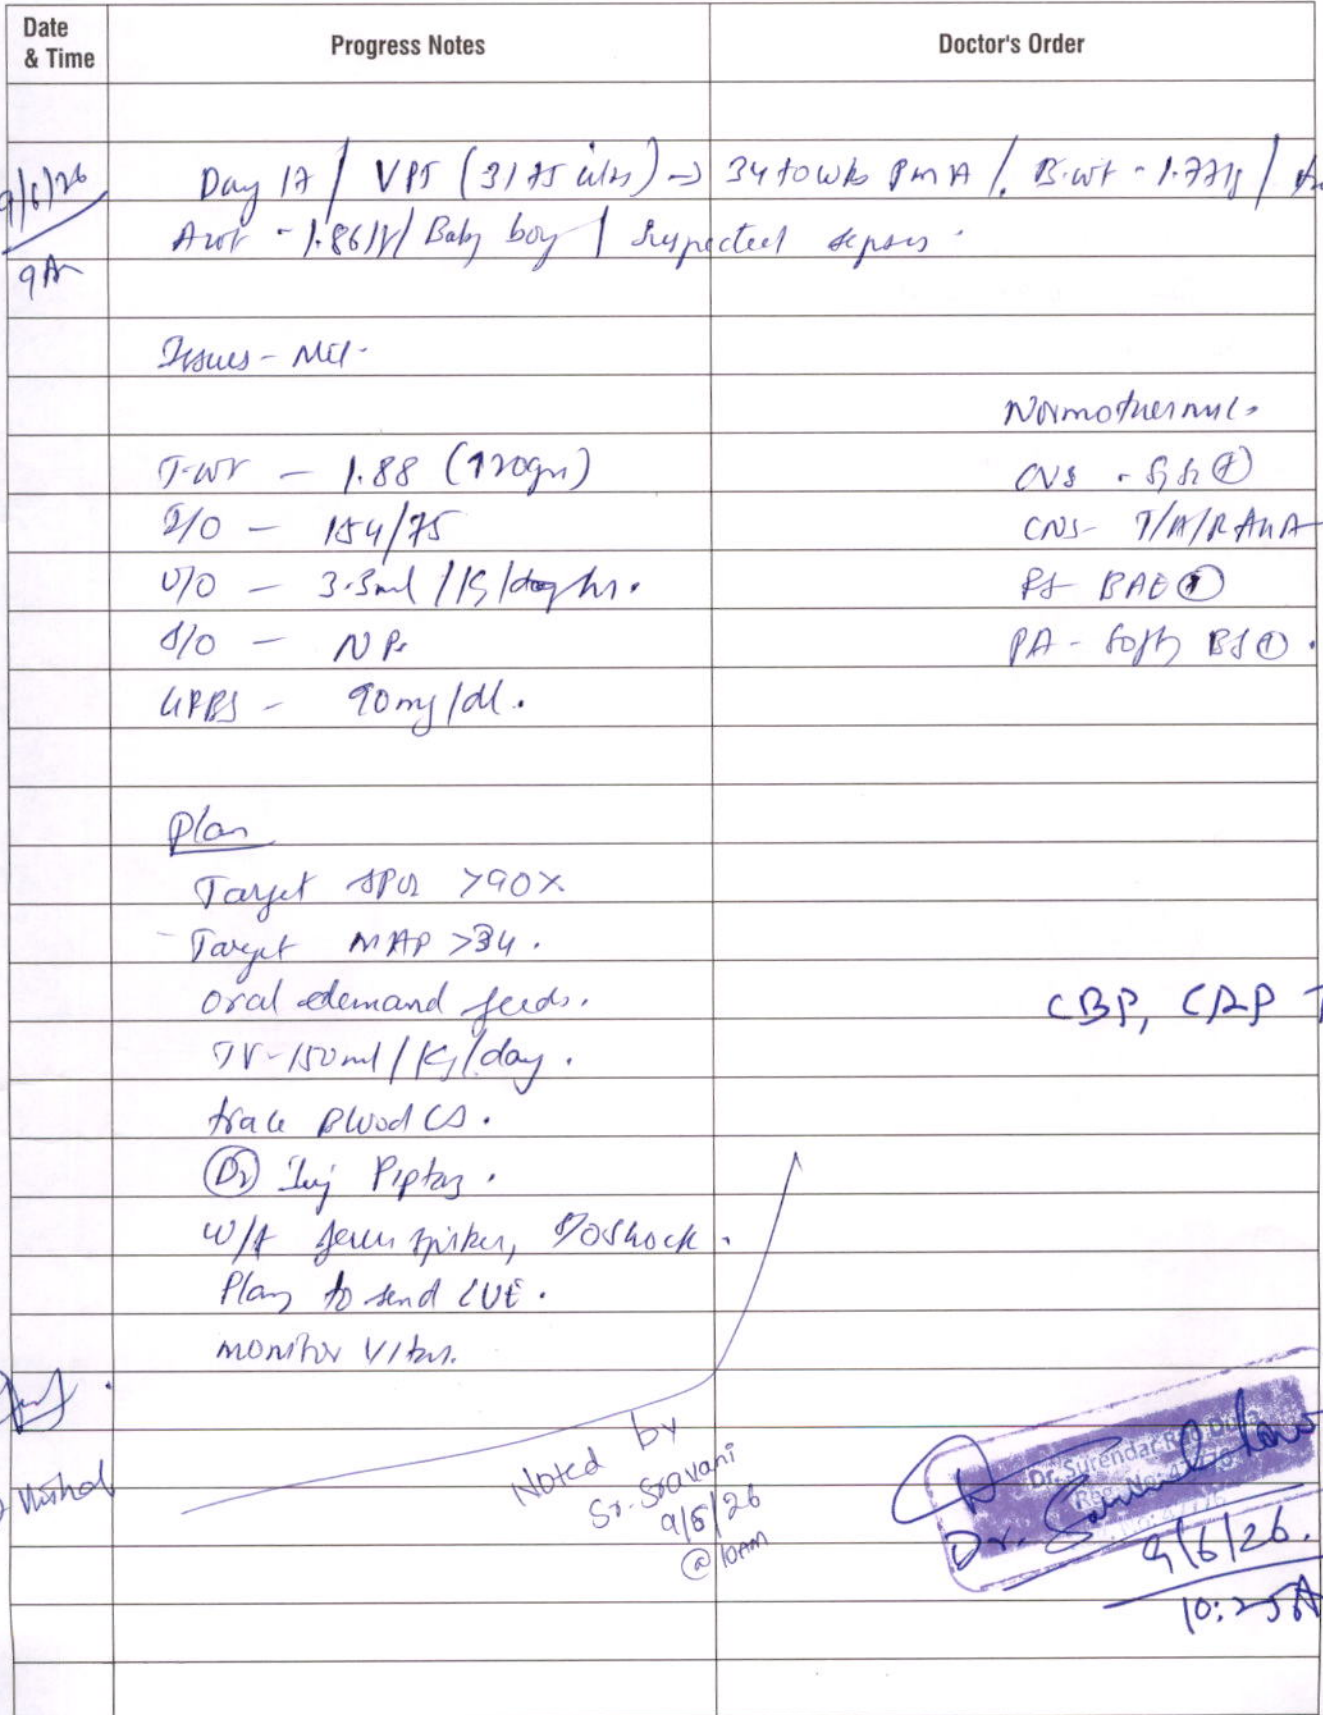 Date & Time Progress Notes Doctor's Order
9/6/26 Day 17 / VPT (31+5 wks) → 34+0 wks PMA / B.wt - 1.77kg /
9A A.wt - 1.86 / Baby boy / Suspected sepsis.
Issues - Nil.
Normothermic.
T.wt - 1.88 (↑20gm) CVS - S1S2 ⊕
I/O - 154/75 CNS - T/A/R
U/O - 3.3ml/kg/hr. RS BAE ⊕
S/O - NP. PA - Soft, BS ⊕.
GRBS - 90mg/dl.
Plan
Target SPO2 >90%
Target MAP >34.
Oral demand feeds.
TV - 150ml/kg/day. CBP, CRP
trace Blood CS.
Inj Piptaz.
W/f spikes, shock.
Plan to send CUE.
monitor vitals.
Noted by
Sr. Sravani
9/6/26
@ 10AM
Dr. Surendar Rao
Reg. No:
Dr.
9/6/26.
10:25A